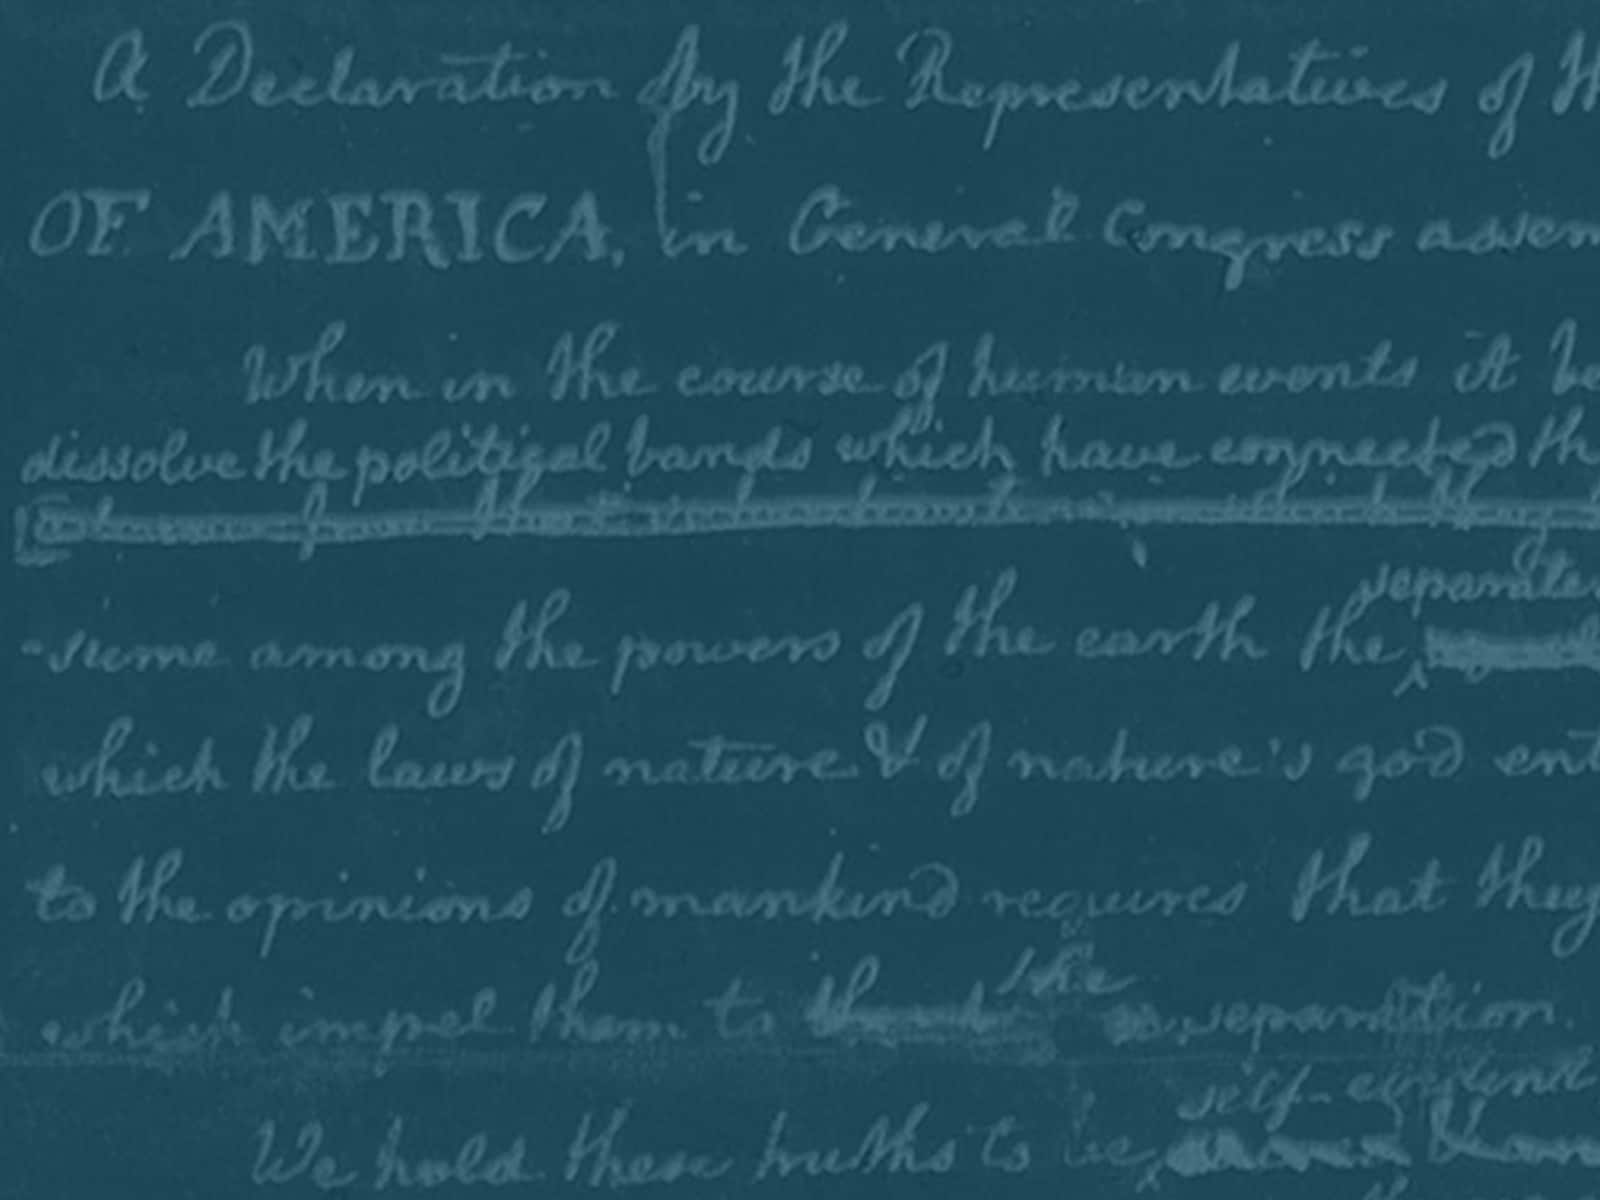 A Declaration by the Representatives of
OF AMERICA, in General Congress assem
When in the course of human events it be
dissolve the political bands which have connected th
separate
-sume among the powers of the earth the
which the laws of nature & of nature's god ent
to the opinions of mankind requires that they
the
which impel them to separation.
self-evident
We hold these truths to be